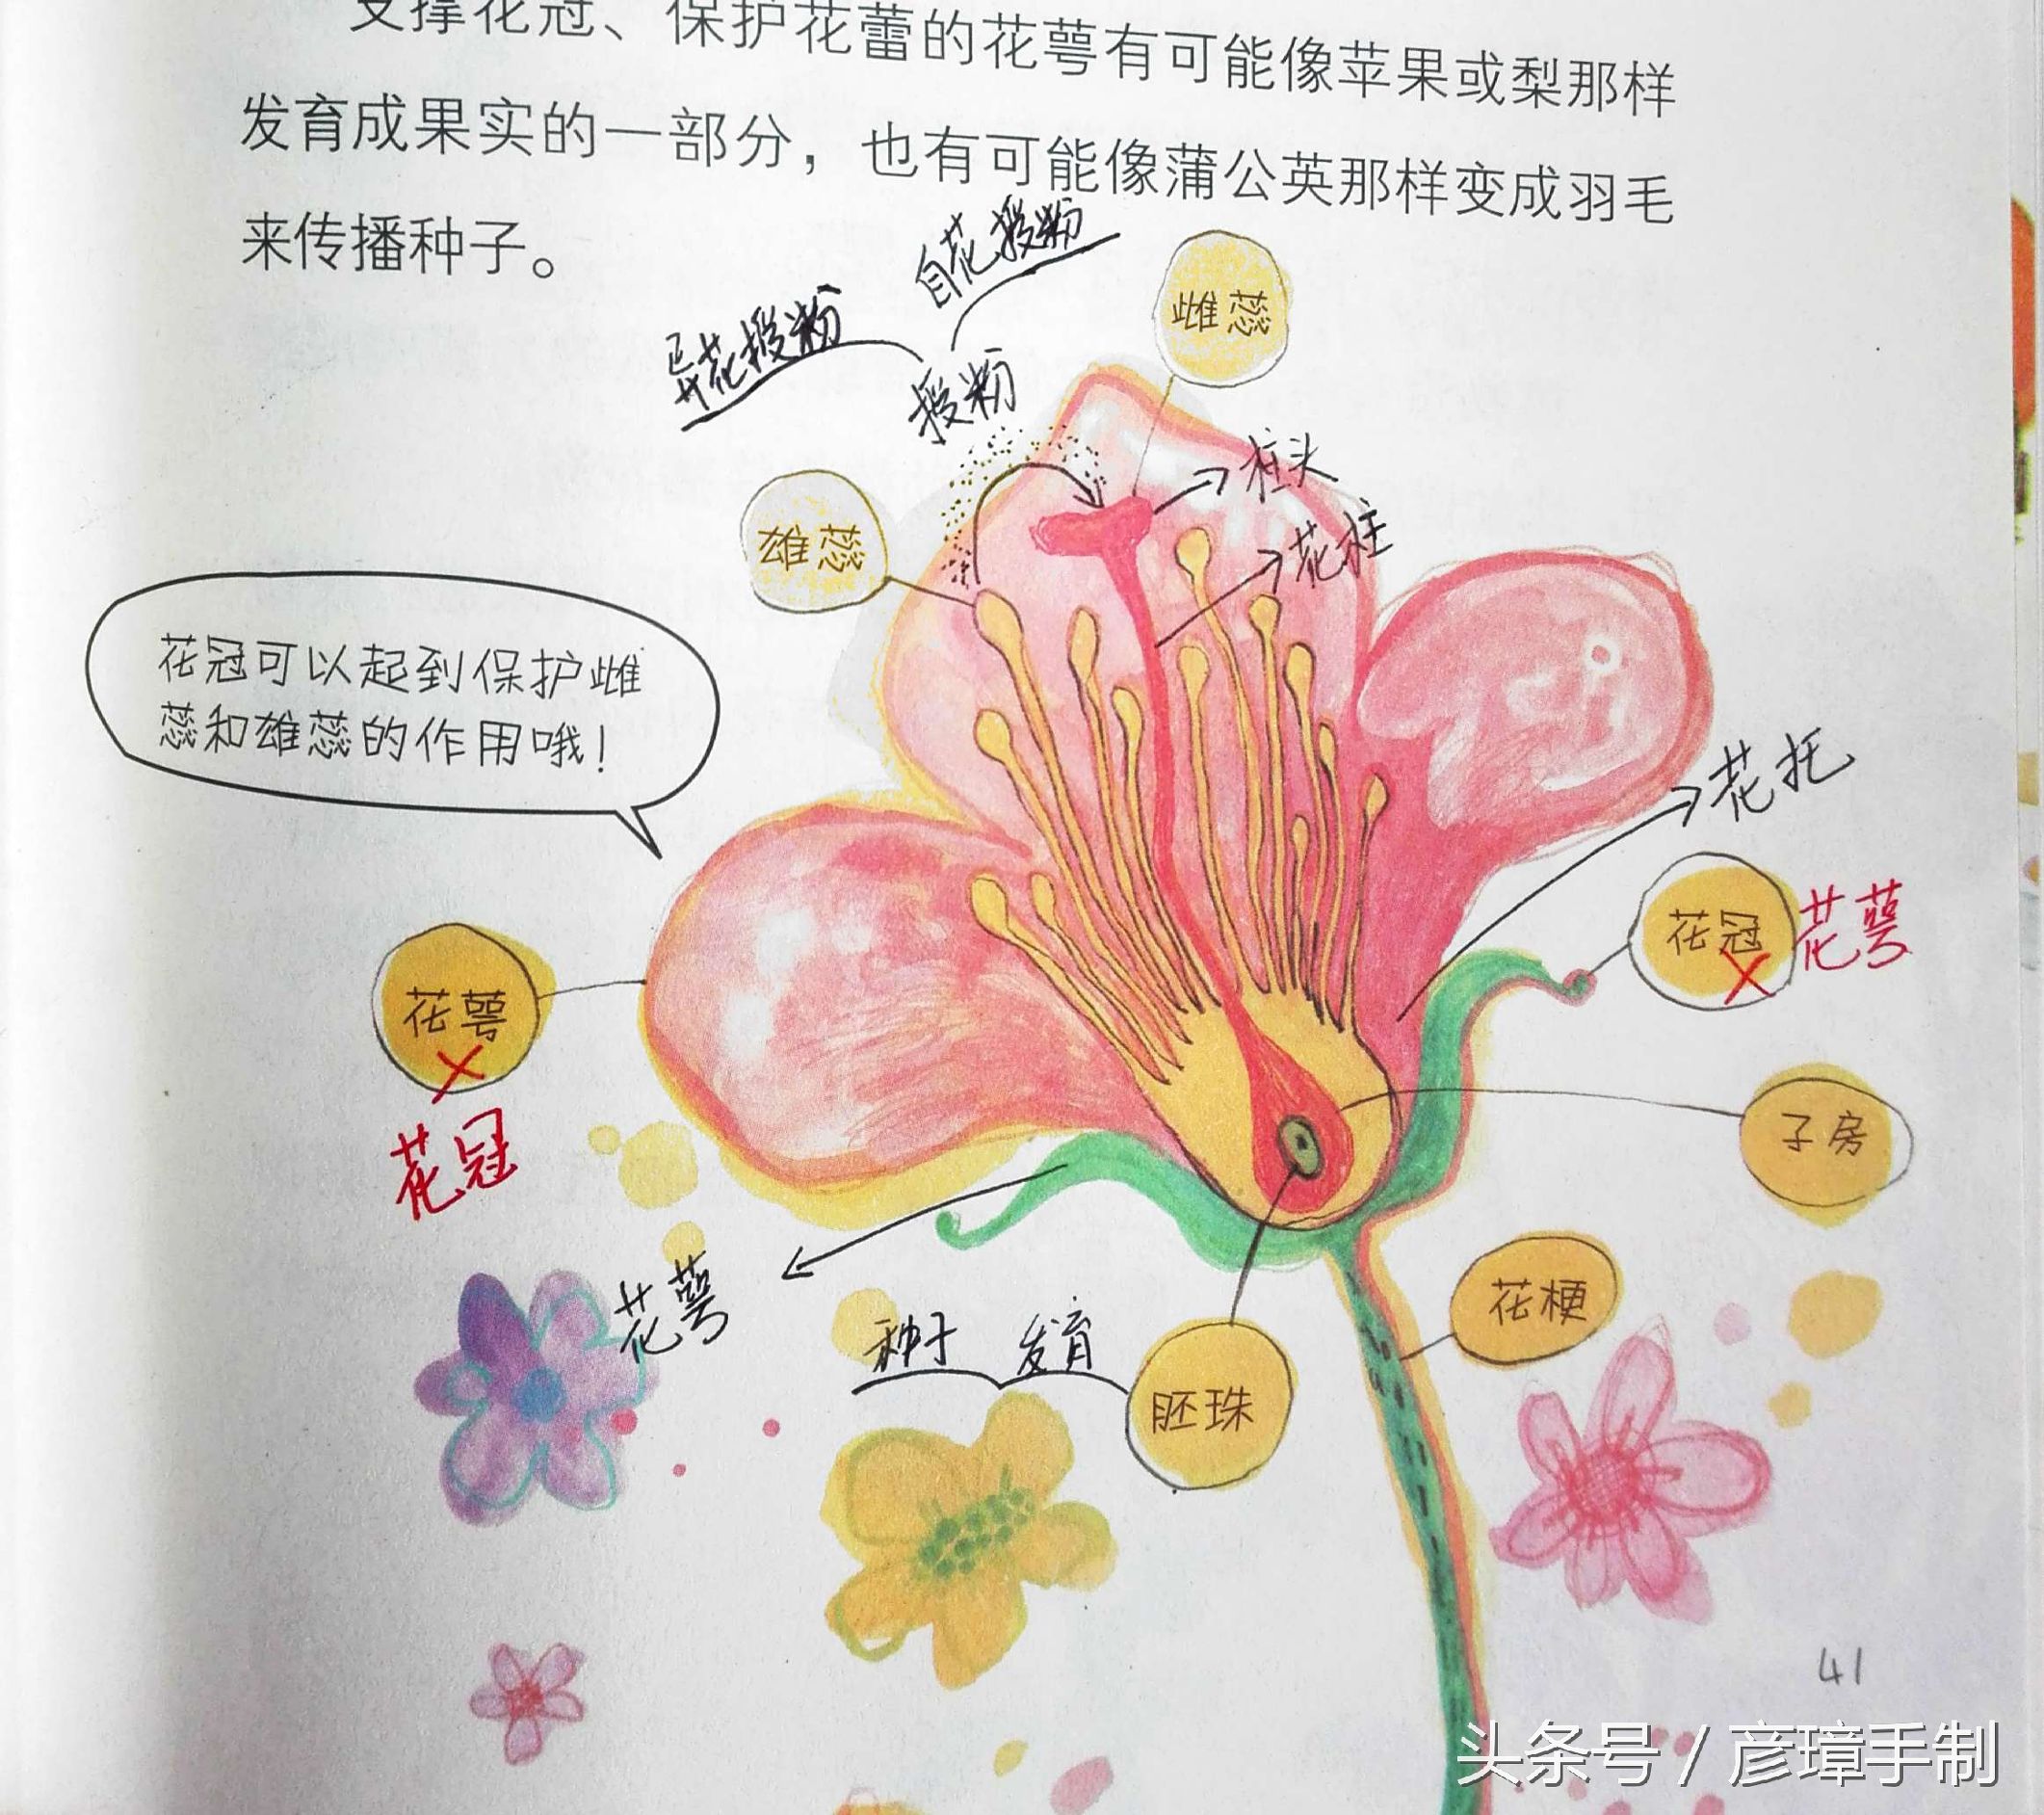 支撑花冠、保护花蕾的花萼有可能像苹果或梨那样
发育成果实的一部分，也有可能像蒲公英那样变成羽毛
来传播种子。
自花授粉
异花授粉
授粉
雌蕊
柱头
雄蕊
花柱
花冠可以起到保护雌
蕊和雄蕊的作用哦！
花托
花冠
×
花萼
花萼
×
花冠
子房
花萼
花梗
种子 发育
胚珠
41
头条号 / 彦璋手制